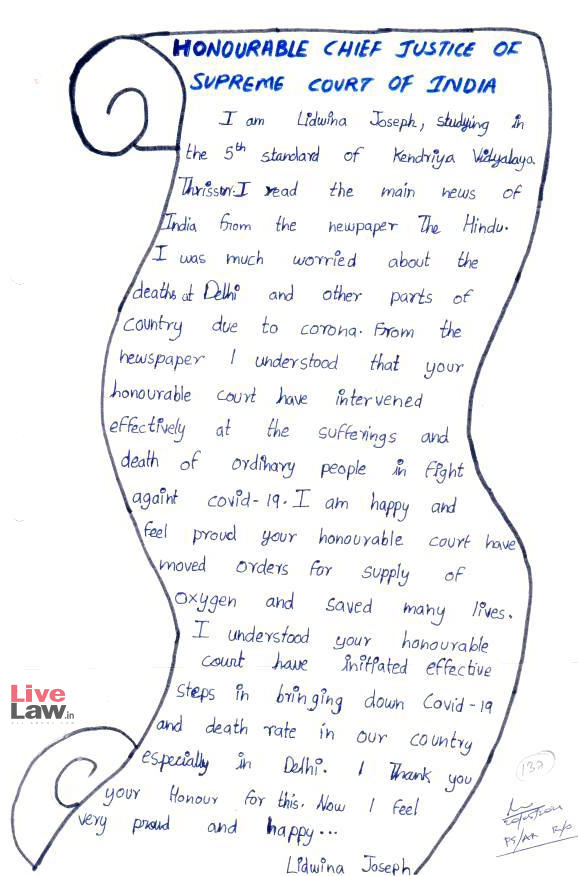 HONOURABLE CHIEF JUSTICE OF
SUPREME COURT OF INDIA
I am Lidwina Joseph, studying in
the 5th standard of Kendriya Vidyalaya
Thrissur. I read the main news of
India from the newpaper The Hindu.
I was much worried about the
deaths at Delhi and other parts of
country due to corona. From the
newspaper I understood that your
honourable court have intervened
effectively at the sufferings and
death of ordinary people in fight
againt covid-19. I am happy and
feel proud your honourable court have
moved orders for supply of
oxygen and saved many lives.
I understood your honourable
court have initiated effective
steps in bringing down Covid-19
and death rate in our country
especially in Delhi. I Thank you
your Honour for this. Now I feel
very proud and happy...
Lidwina Joseph
Live
Law.in
137
PS/AR R/o